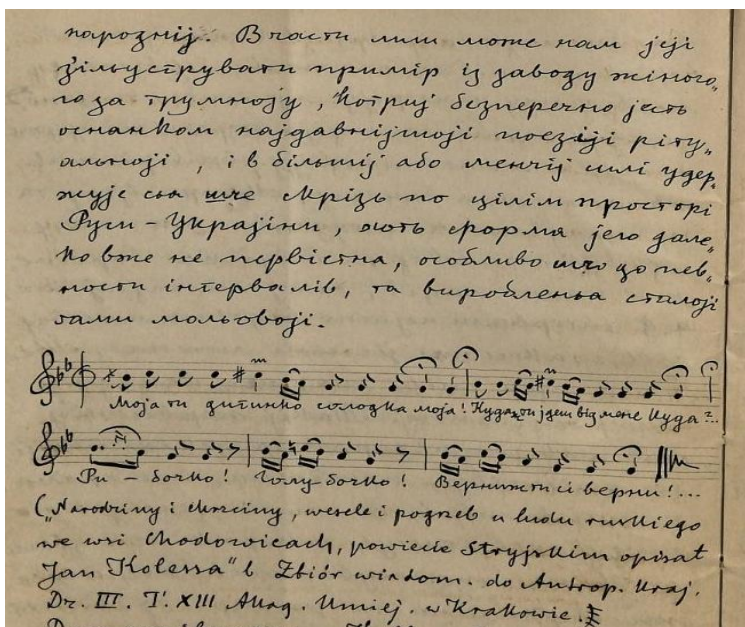 нарознјій. В части лиш може нам јејі
зільуструвати примір із заводу жіночо„
го за трумноју, котриј безперечно јесть
останком најдавнijшојі поезіјі риту„
альнојі, і в більшіј або менчіј силі удер„
жује сьа шче скрізь по цілім просторі
Руси-Украјіни, хоть форма јего дале„
ко вже не первістна, особливо шчо до пев„
ности інтервалів, та виробленьа сталојі
гами мольовојі.
Моја ти дитинко солодка моја! Куда ти јдеш від мене куда?..
Ри - бочко! Голу-бочко! Вернижти сі верни!...
(„Narodziny i chrzciny, wesele i pogrzeb u ludu ruskiego
we wsi Chodowicach, powiecie Stryjskim opisał
Jan Kolessa" в Zbiór wiadom. do Antrop. Kraj.
Dr. III. T. XIII Akad. Umiej. w Krakowie.